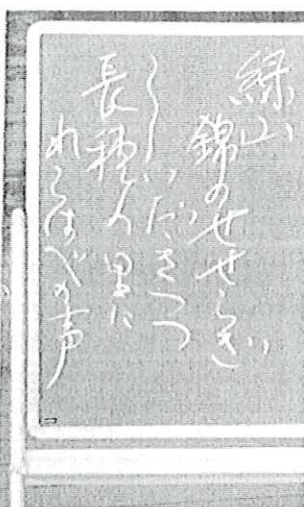 緑山
錦のせせらぎ
いだきつつ
長種人里に
わらべの声